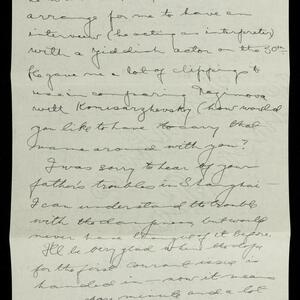 arrange for me to have an
interview (he acting as interpreter)
with a Yiddish actor on the 30th.
He gave me a lot of clippings to
use in comparing
with Komisarzhevsky (how would
you like to have to carry that
name around with you?
I was sorry to hear of your
father's troubles in Shanghai —
I can understand the trouble
with the dampness but would
never have thought of it before.
I'll be very glad when
for the first course is
handed in — now it means
every minute and a lot